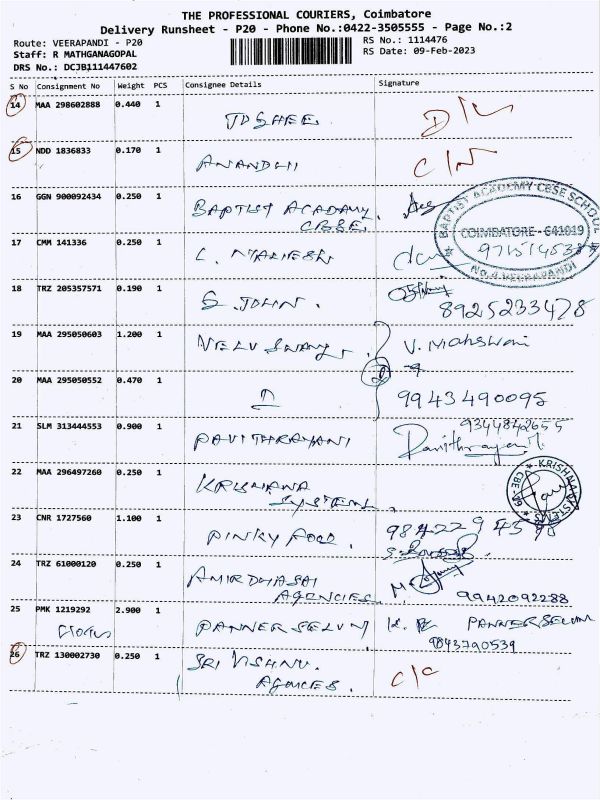 THE PROFESSIONAL COURIERS, Coimbatore
Delivery Runsheet - P20 - Phone No.:0422-3505555 - Page No.:2
Route: VEERAPANDI - P20
RS No.: 1114476
Staff: R MATHGANAGOPAL
RS Date: 09-Feb-2023
DRS No.: DCJB111447602
S No Consignment No Weight PCS Consignee Details Signature
14 MAA 298602888 0.440 1 D/L
15 NDD 1836833 0.170 1 C/N
16 GGN 900092434 0.250 1 BAPTIST ACADAMY
CBSE.
BAPTIST ACADEMY CBSE SCHOOL
COIMBATORE - 641019
No.4 VEERAPANDI
17 CMM 141336 0.250 1
18 TRZ 205357571 0.190 1 S. JOHN. 8925233478
19 MAA 295050603 1.200 1 VELU SWAMY V. Maheswari
20 MAA 295050552 0.470 1 9943490095
9344842655
21 SLM 313444553 0.900 1 PAVITHRAYANI
22 MAA 296497260 0.250 1 KRISHANA
SYSTEMS
KRISHNA SYSTEMS
CBE-19
23 CNR 1727560 1.100 1 PINKY FOOD. 9842294598
24 TRZ 61000120 0.250 1
AGENCIES 9942092288
25 PMK 1219292 2.900 1 PANNER SELVM PANNER SELVM
9843790539
26 TRZ 130002730 0.250 1 SRI VISHNU.
AGENCIES. C/C